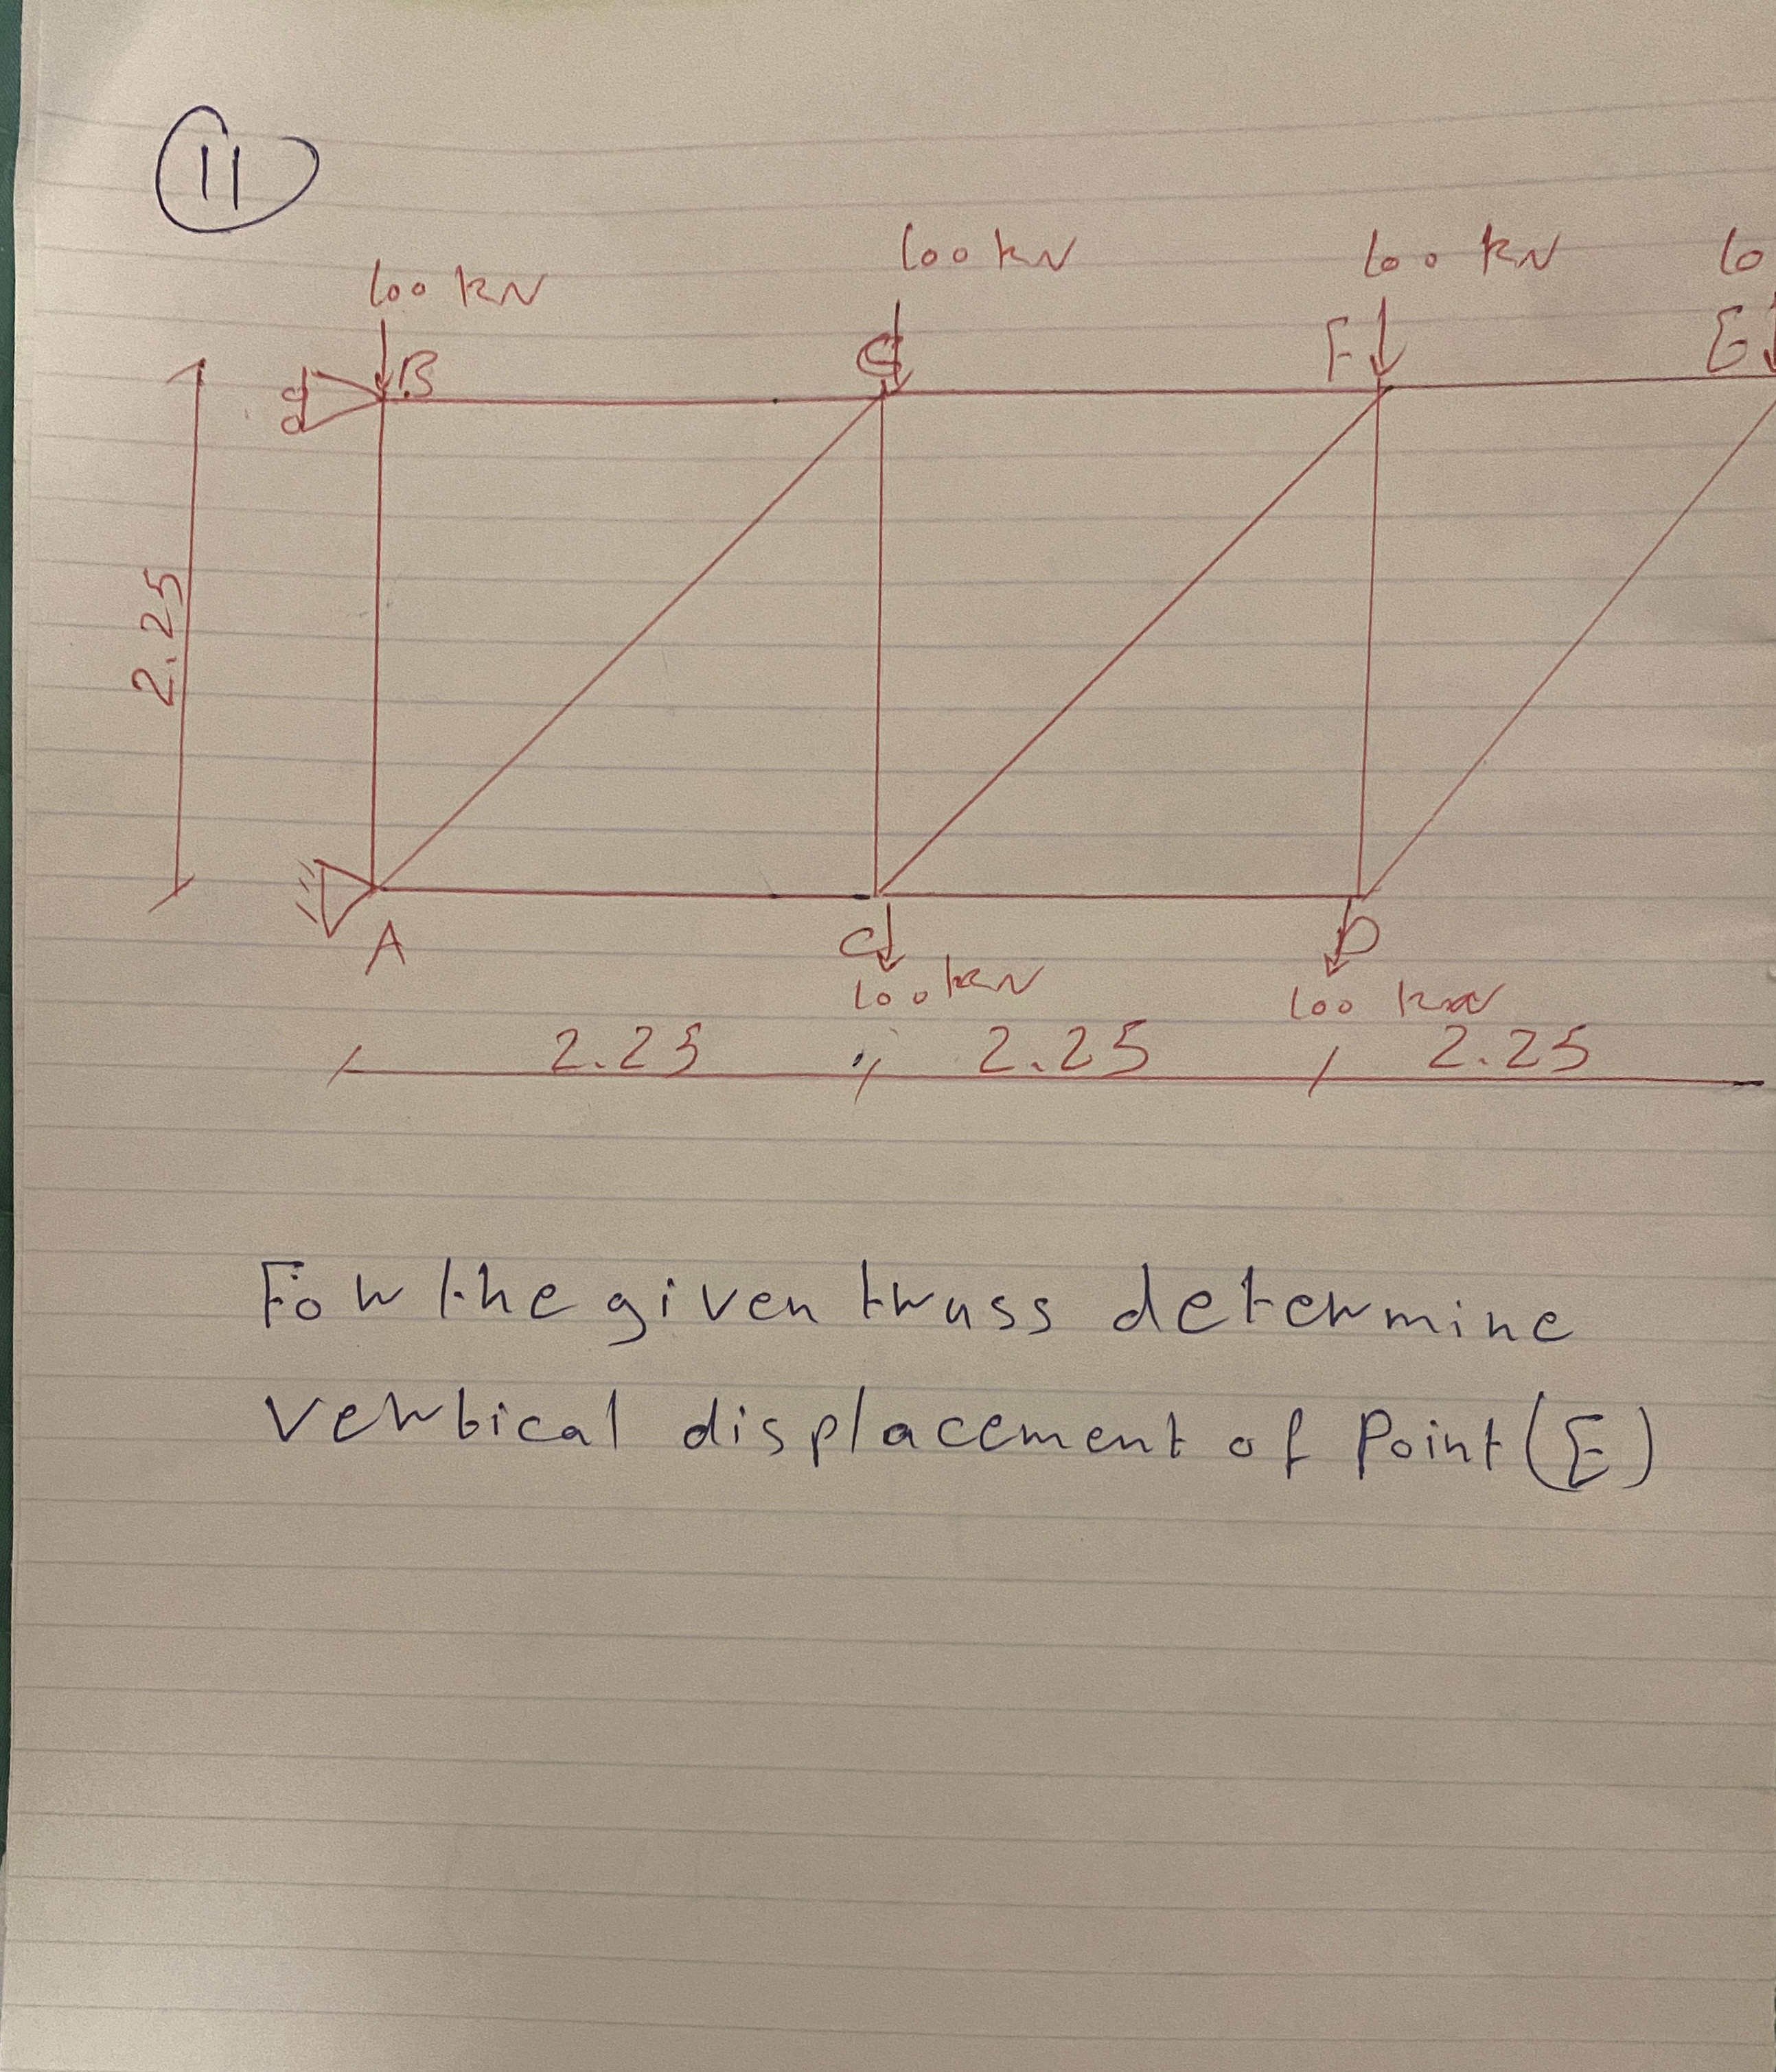 11
100 kN
100 kN
100 kN
10
B
G
F
E
2.25
A
C
D
100 kN
100 kN
2.25
2.25
2.25
For the given truss determine
vertical displacement of Point (E)